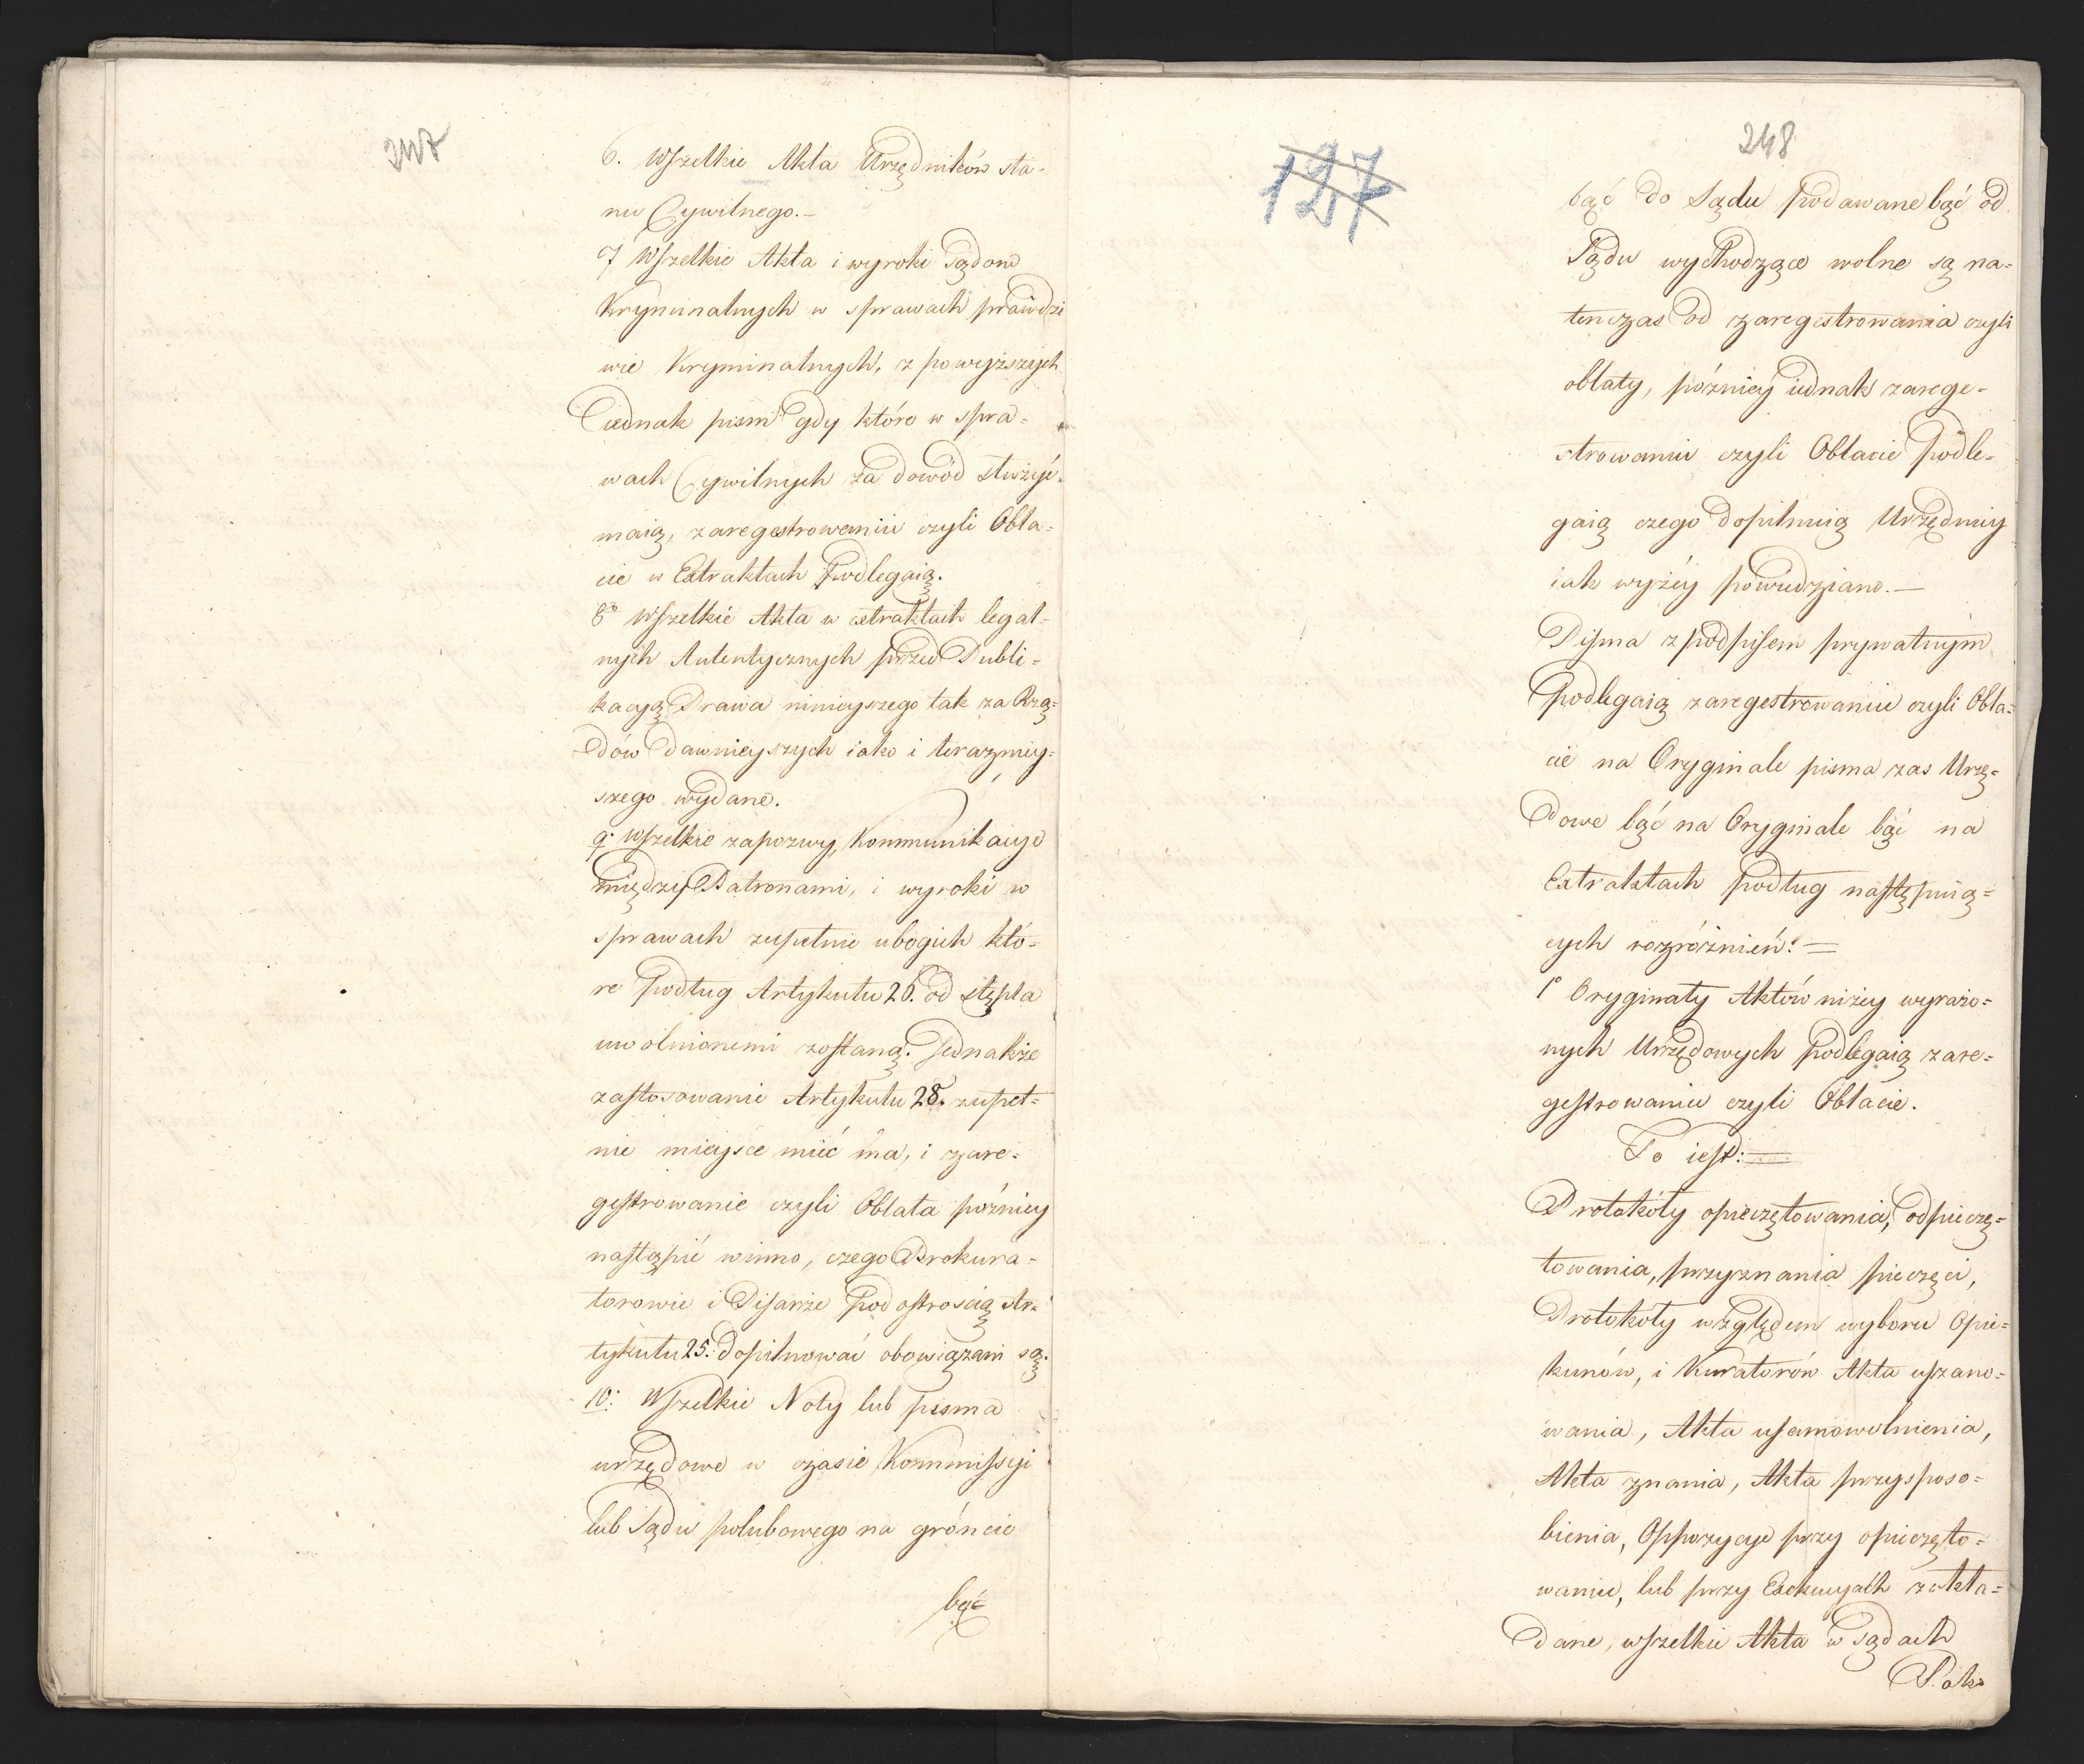 247
6. Wszelkie Akta Urzędników sta-
nu Cywilnego.-
7 Wszelkie Akta i wyroki Sądow
Kryminalnych w sprawach prawdzi
wie Kryminalnych, z powyższych
iednak pism gdy które w spra=
wach Cywilnych za dowód służyć
maią, zaregestrowaniu czyli Obla=
cie w Extraktach podlegaią.
8° Wszelkie Akta w extraktach legal-
nych Autentycznych przed Publi=
kacyą Prawa ninieyszego tak za Rzą=
dów dawnieyszych iako i teraźniey=
szego wydane.
9. Wszelkie zapozwy, Kommunikacye
między Patronami, i wyroki w
sprawach zupełnie ubogich któ=
re podług Artykułu 26. od stępla
uwolnionemi zostaną. Jednakże
zastosowanie Artykułu 28. zupeł=
nie mieysce mieć ma, i zare=
gestrowanie czyli Oblata późniey
nastąpić winno, czego Prokura-
torowie i Pisarze pod ostrością Ar=
tykułu 25. dopilnować obowiązani są.
10: Wszelkie Noty lub pisma
urzędowe w czasie Kommissyi
lub Sądu polubowego na gróncie
bąć
127
248
bąć do Sądu podawane bąć od
Sądu wychodzące wolne są na=
tenczas od zaregestrowania czyli
oblaty, późniey iednak zarege-
strowaniu czyli Oblacie podle=
gaią czego dopilnuią Urzędnicy
iak wyżey powiedziano.—
Pisma z podpisem prywatnym
podlegaią zaregestrowaniu czyli Obla=
cie na Oryginale pisma zas Urzę=
dowe bąć na Oryginale bąć na
Extraktach podług następuią=
cych rozróżnień:=
1° Oryginały Aktów niżey wyrażo=
nych Urzędowych podlegaią zare=
gestrowaniu czyli Oblacie.
To iest:=
Protokóły opieczętowania, odpieczę=
towania, przyznania pieczęci,
Protokoły względem wyboru Opie=
kunów, i Kuratorów Akta uszano=
wania, Akta usamowolnienia,
Akta znania, Akta przysposo=
bienia, Oppozycye przy opieczęto=
waniu, lub przy Exekucyach zakła=
dane, wszelkie Akta w Sądach